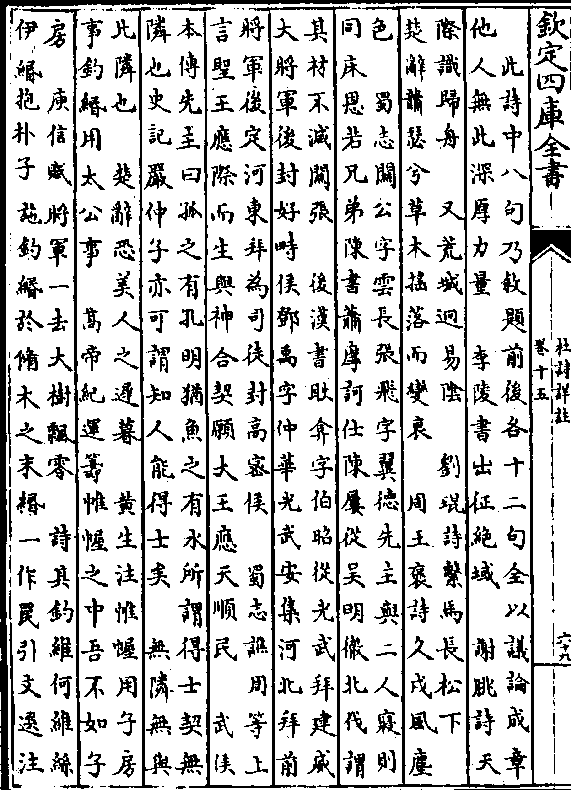 欽定四庫全書
杜詩詳註
卷十五
六十九
此詩中八句乃敘題前後各十二句全以議論成章
他人無此深厚力量　李陵書出征絶域　謝朓詩天
際識歸舟　又荒城迥易陰　劉琨詩繫馬長松下
楚辭蕭瑟兮草木摇落而變衰　周王褒詩久戍風塵
色　蜀志關公字雲長張飛字翼德先主與二人寢則
同床恩若兄弟陳書蕭摩訶仕陳屢從吳明徹北伐謂
其材不減關張　後漢書耿弇字伯昭從光武拜建威
大將軍後封好畤侯鄧禹字仲華光武安集河北拜前
將軍後定河東拜為司徒封高密侯　蜀志譙周等上
言聖王應際而生與神合契願大王應天順民　武侯
本傳先主曰孤之有孔明猶魚之有水所謂得士契無
隣也史記嚴仲子亦可謂知人能得士矣　無隣無與
此隣也　楚辭恐美人之遲暮　黄生注惟幄用子房
事釣緡用太公事　高帝紀運籌惟幄之中吾不如子
房　庾信賦將軍一去大樹飄零　詩其釣維何維絲
伊緡抱朴子施釣緡於脩木之末緡一作罠引文選注